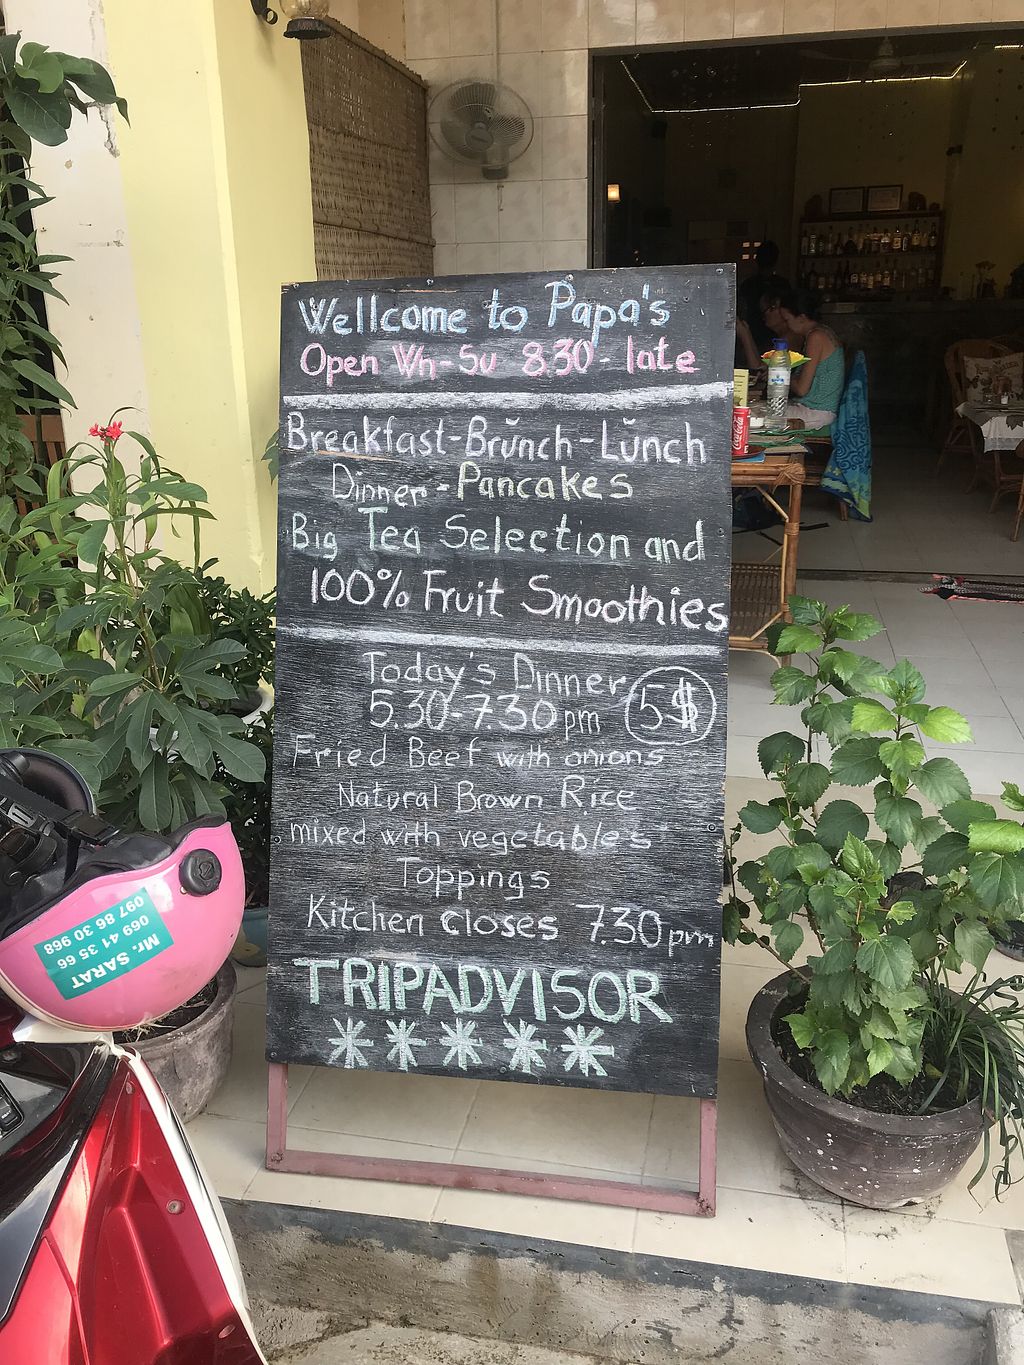 Wellcome to Papa's
Open Wh-Su 8.30 - late
Breakfast-Brŭnch-Lŭnch
Dinner-Pancakes
Big Tea Selection and
100% Fruit Smoothies
Today's Dinner
5.30-7.30 pm
5$
Fried Beef with onions
Natural Brown Rice
mixed with vegetables
Toppings
Kitchen closes 7.30 pm
TRIPADVISOR
*****
Mr. SARAT
069 41 35 66
097 86 30 968
Coca-Cola